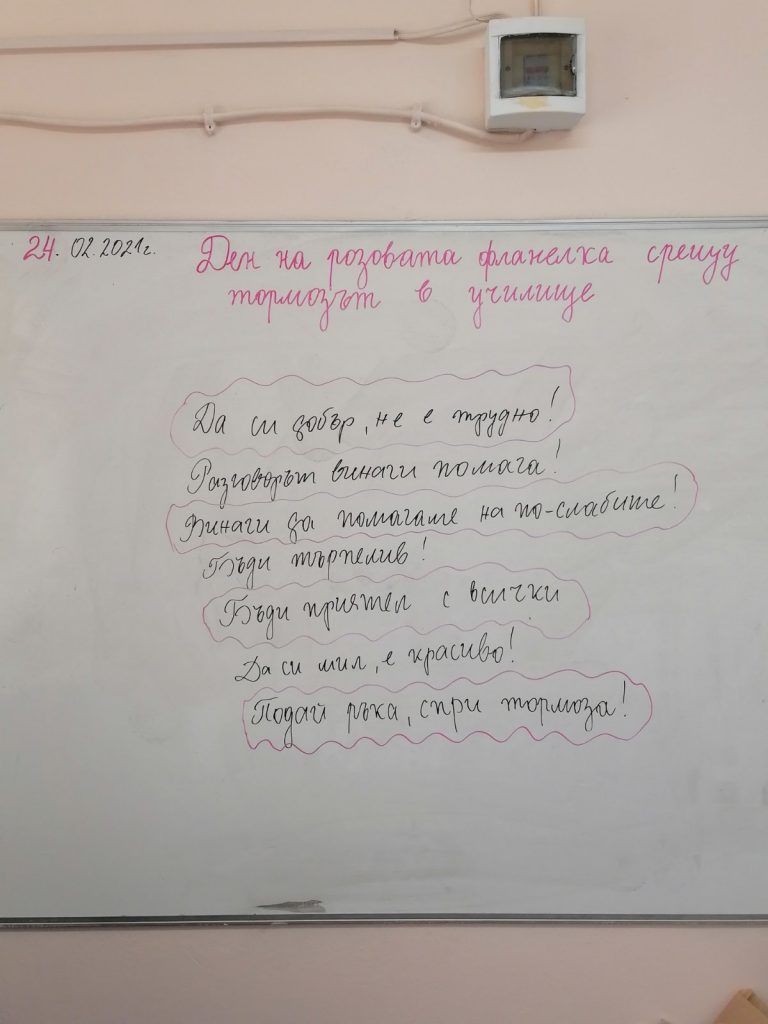 24. 02. 2021г. Ден на розовата фланелка срещу
тормозът в училище
Да си добър, не е трудно!
Разговорът винаги помага!
Винаги да помагаме на по-слабите!
Бъди търпелив!
Бъди приятел с всички
Да си мил, е красиво!
Подай ръка, спри тормоза!